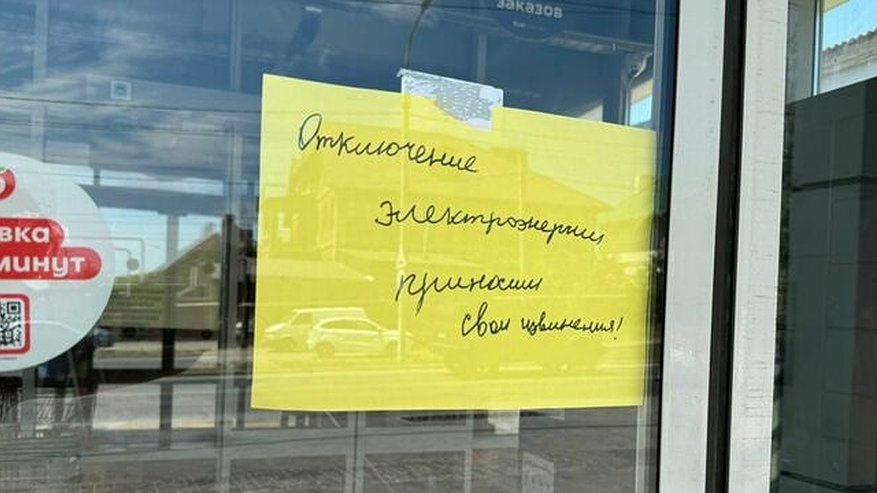 заказов
Отключение
электроэнергии
приносим
свои извинения!
вка
минут